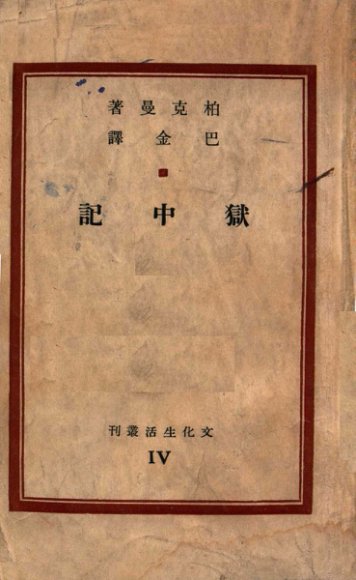 柏克曼著
巴金譯
獄中記
文化生活叢刊
IV